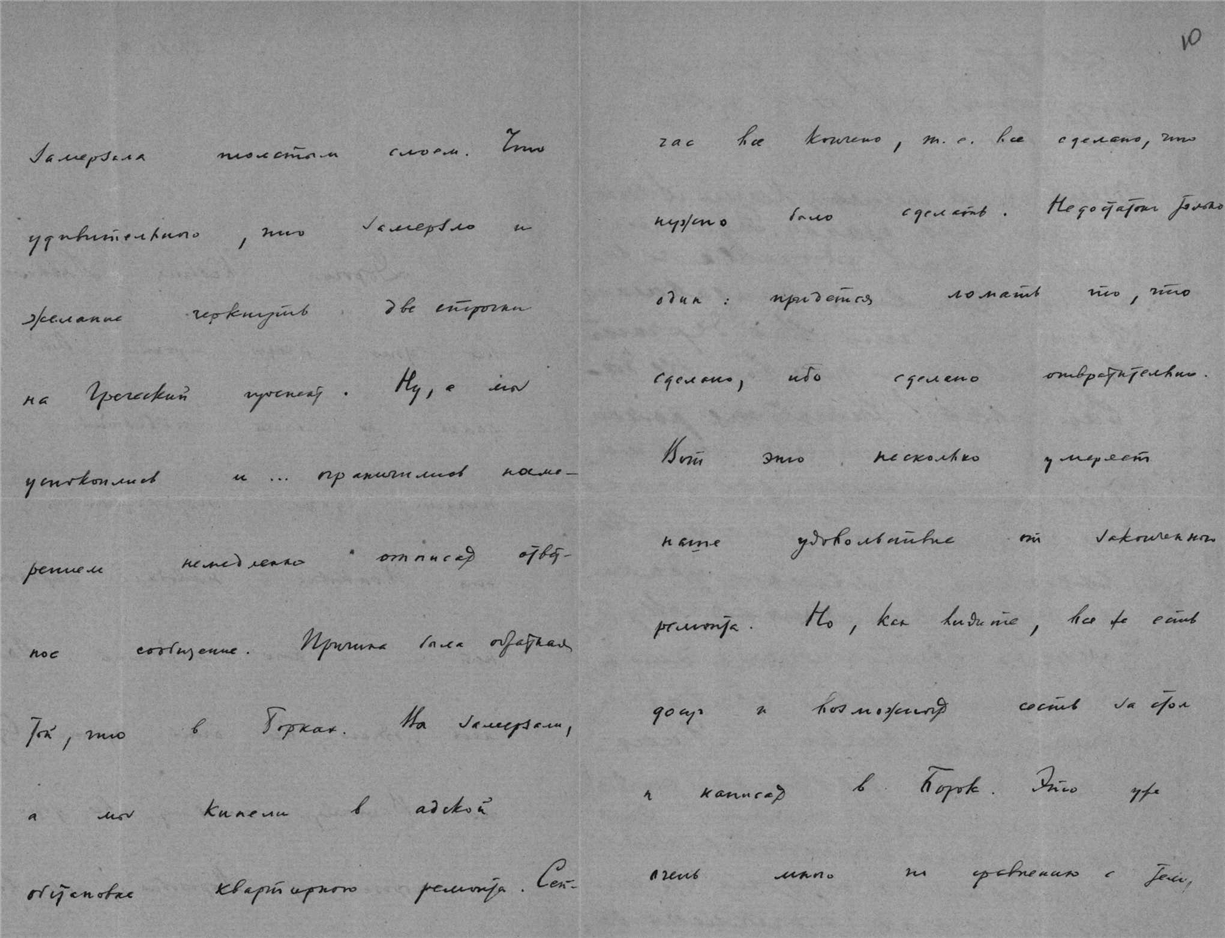 замерзала толстым слоем. Что
удивительного, что замерзло и
желание черкнуть две строчки
на Греческий проспект. Ну, а мы
успокоились и ... ограничились наме-
рением немедленно отписать ответ-
ное сообщение. Причина была обратная
той, что в Борках. Вы замерзали,
а мы кипели в адской
обстановке квартирного ремонта. Сей-
10
час все кончено, т.е. все сделано, что
нужно было сделать. Недостаток только
один: придется ломать то, что
сделано, ибо сделано отвратительно.
Вот это несколько умеряет
наше удовольствие от законченного
ремонта. Но, как видите, все же есть
досуг и возможность сесть за стол
и написать в Борок. Это уже
очень много по сравнению с тем,